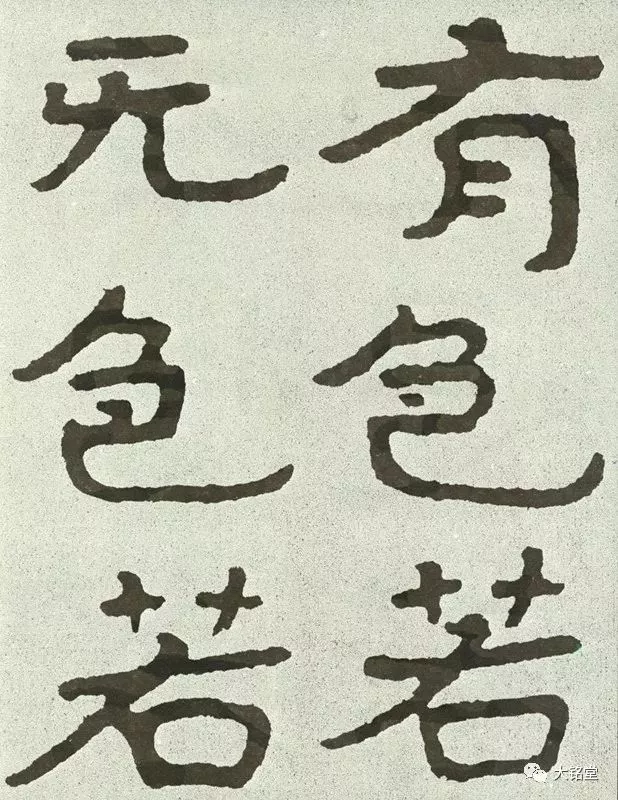 有色若
无色若
大铭堂